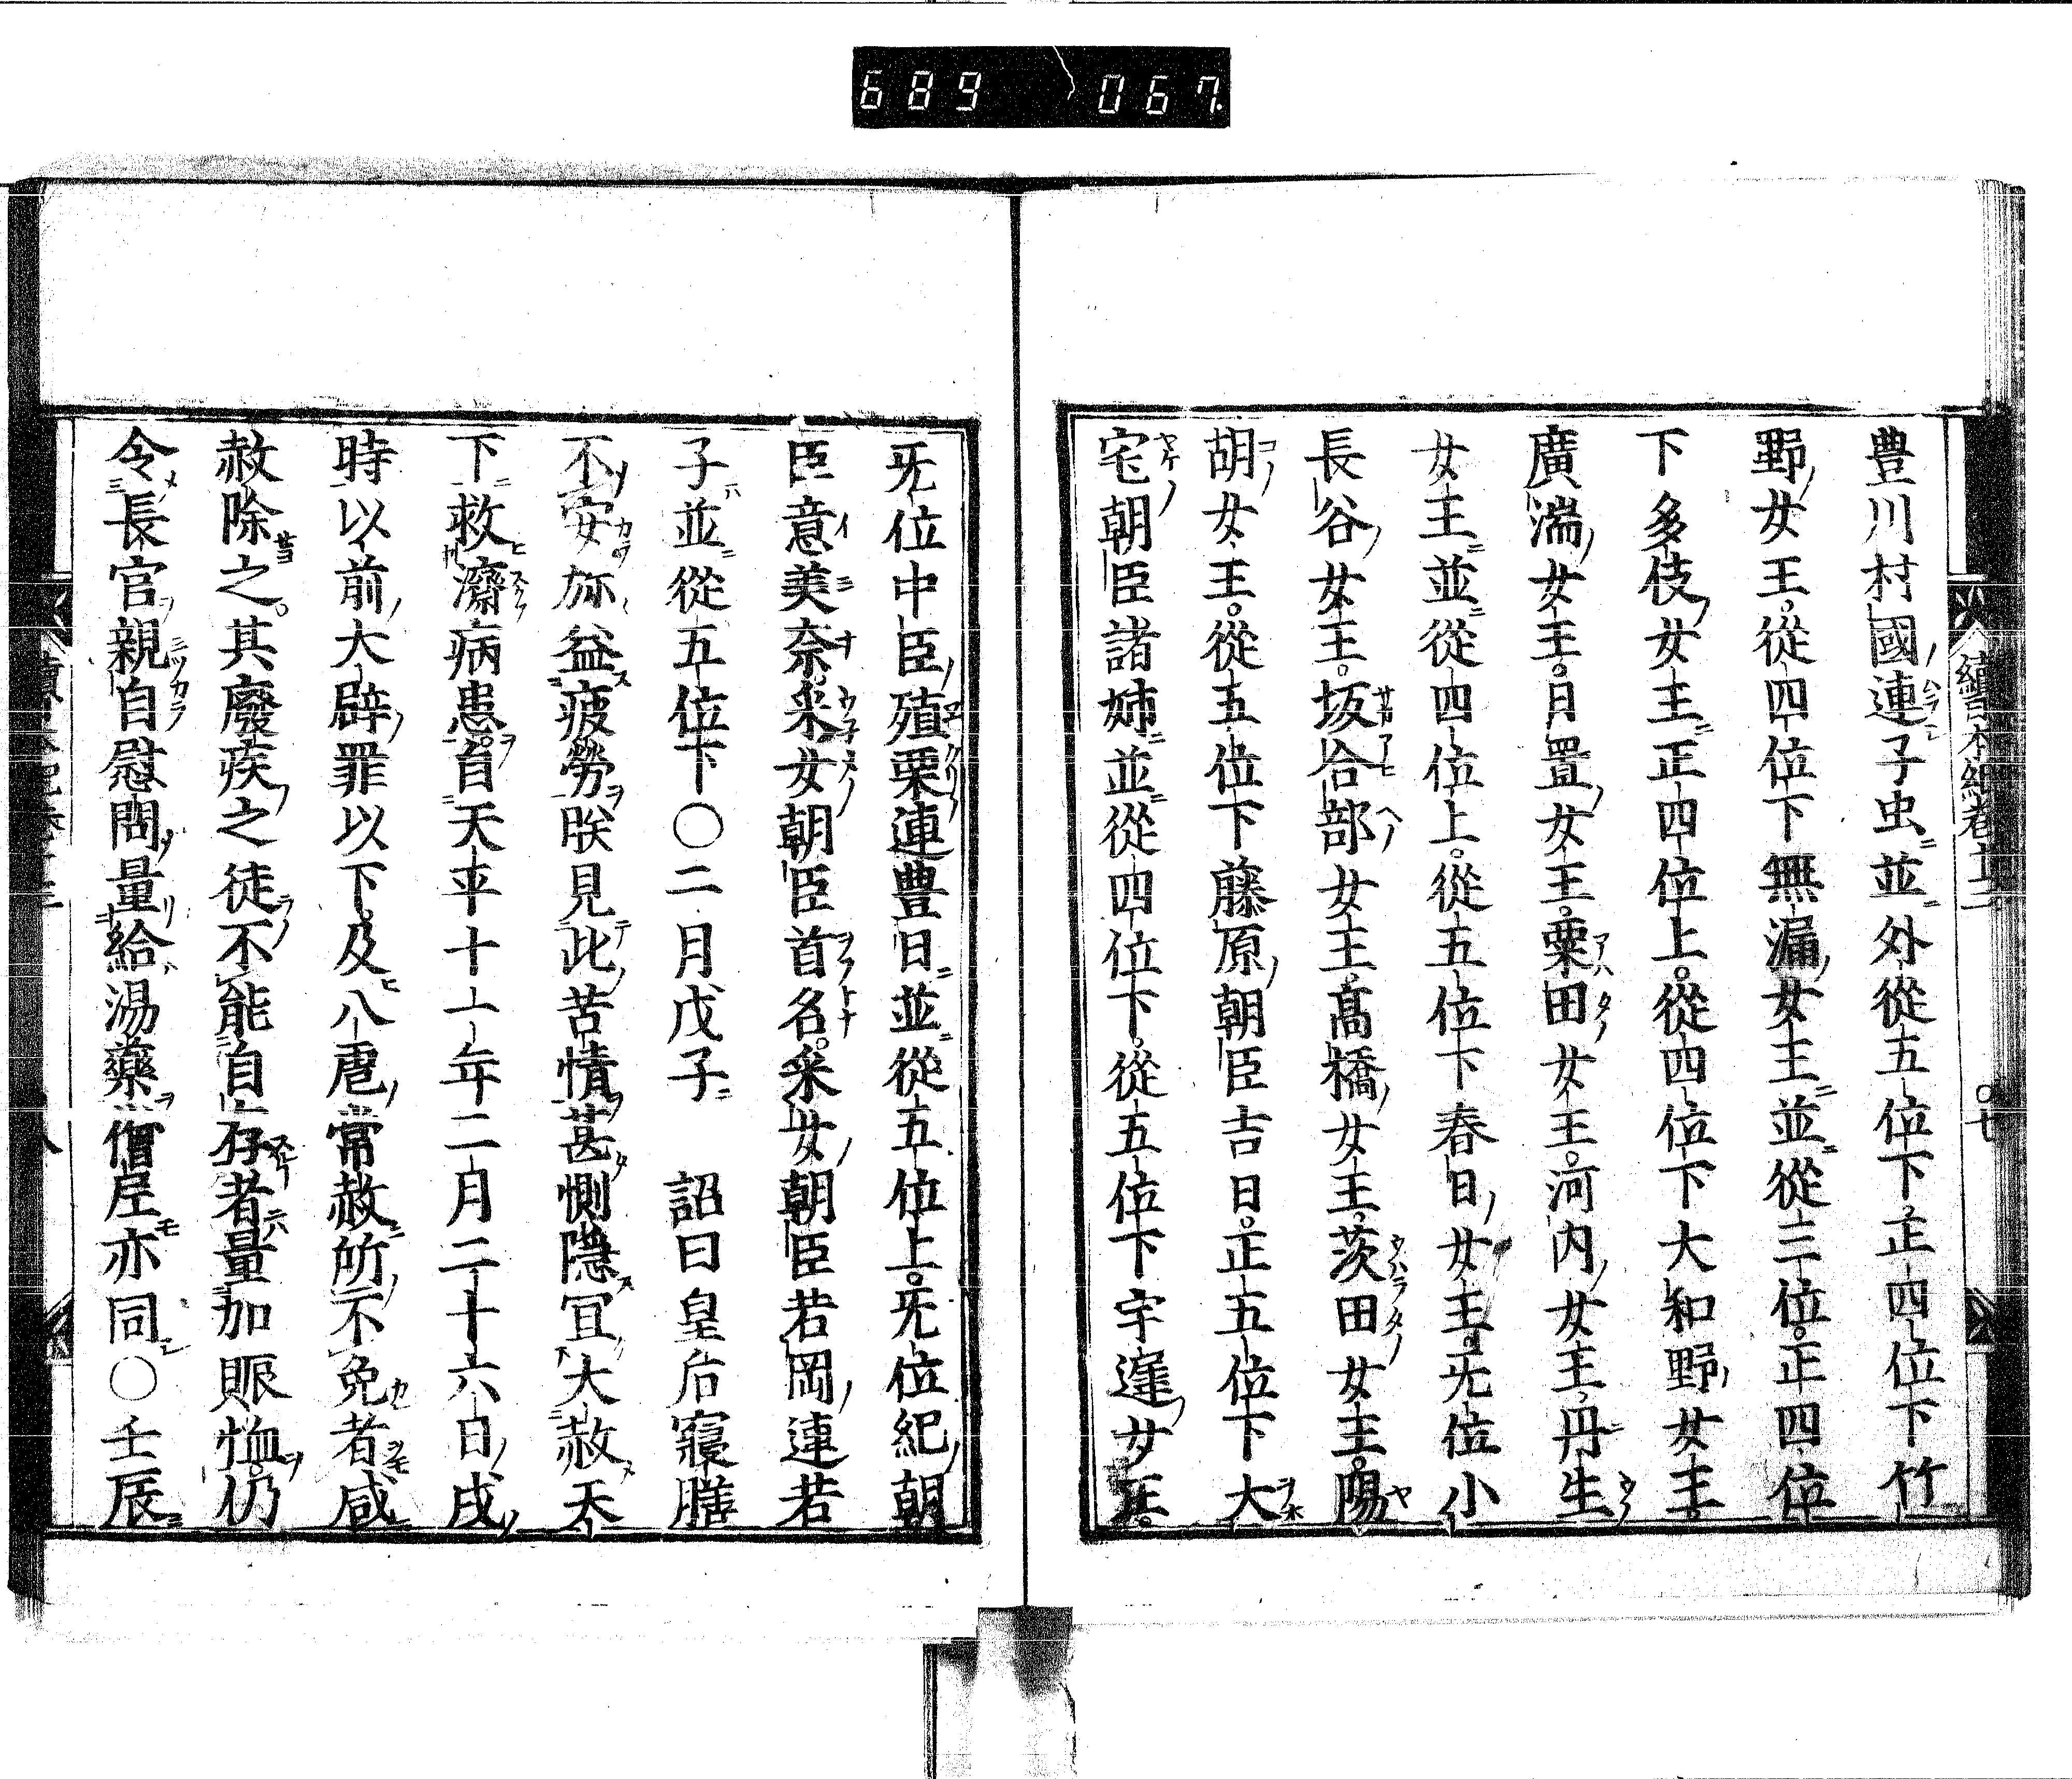 689 067
續日本紀卷十三
〇七
豊川村國連子虫並外從五位下正四位下竹
野女王從四位下無漏女王並從三位正四位
下多伎女王正四位上從四位下大和野女王
廣湍女王月置女王粟田女王河内女王丹生
女王並從四位上從五位下春日女王无位小
長谷女王坂合部女王高橋女王茨田女王陽
胡女王從五位下藤原朝臣吉日正五位下大
宅朝臣諸姉並從四位下從五位下宇遲女王
无位中臣殖栗連豊日並從五位上无位紀朝
臣意美奈采女朝臣首名采女朝臣若岡連若
子並從五位下〇二月戊子 詔曰皇后寢膳
不安弥益疲勞朕見此苦情甚惻隱宜大赦天
下救濟病患自天平十一年二月二十六日戌
時以前大辟罪以下及八虐常赦所不免者咸
赦除之其廢疾之徒不能自存者量加賑恤仍
令長官親自慰問量給湯藥僧尼亦同〇壬辰